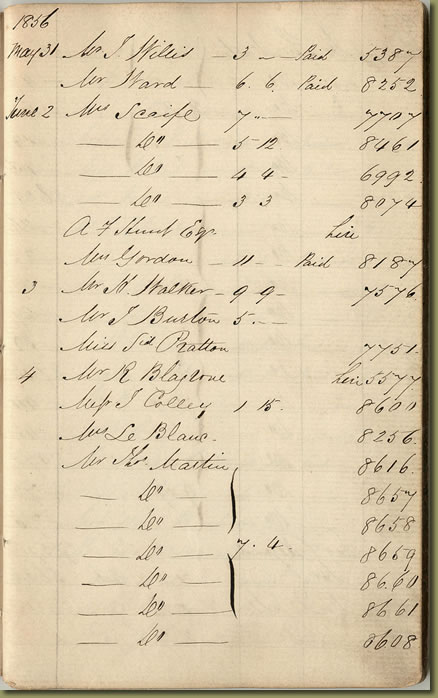 1856
May 31 Mr J Willis - 3 - - Paid 5387
Mr Ward - 6. 6. Paid 8252
June 2 Mrs Scaife 7 " - 7707
Do 5 12 8461
Do 4 4 - 6992
Do 3 3 8074
A F Hunt Esq. hire
Mrs Gordon - 11 - - Paid 8187
3 Mr H Walker - 9 9 - 7576
Mr J Burton 5 . -
Miss Pratton 7751
4 Mr R Blagrove hire 5577
J Colley 1 15. 8600
Mrs Le Blanc. 8256
Mr Thos Martin 8616
Do 8657
Do 8658
Do 7. 4. 8659
Do 8660
Do 8661
Do 8608